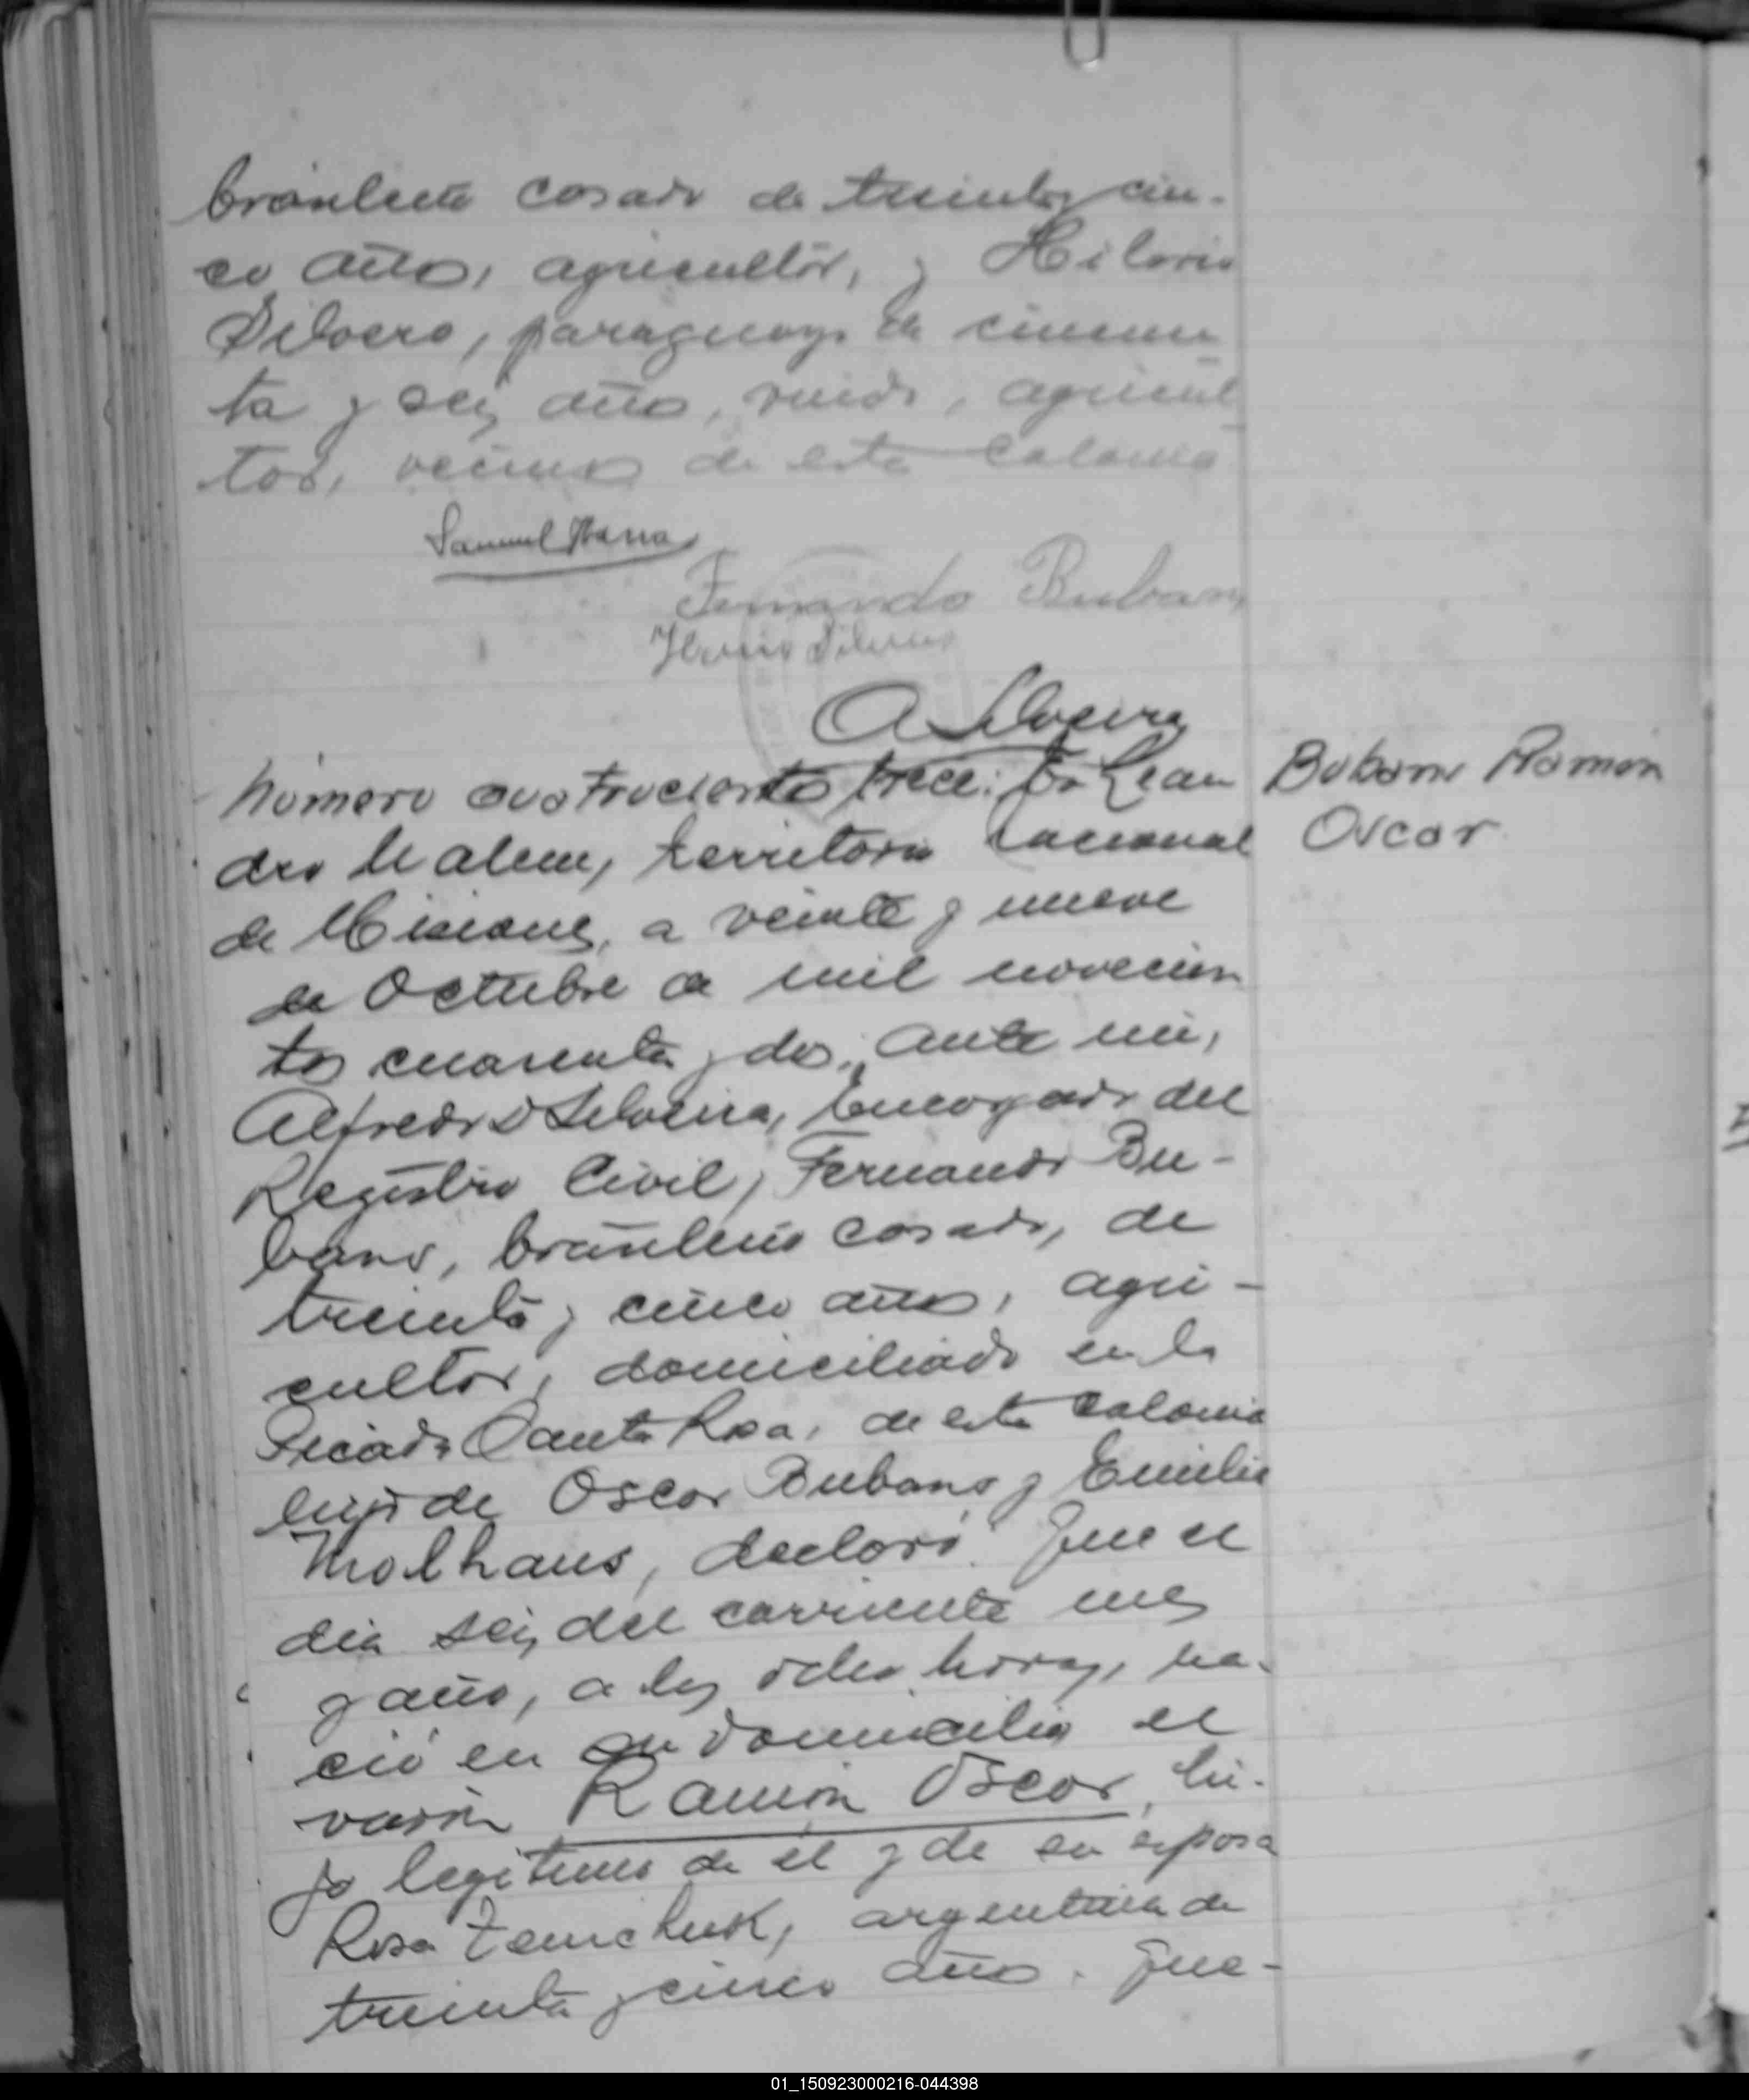 brasileño casado de treinta y cin-
co años, agricultor, y Hilario
Silvero, paraguayo de cincuen-
ta y seis años, viudo, agricul
tor, vecinos de esta Colonia
Samuel
Fernando Bubans
Silvero
A Silveira
Número cuatrocientos trece: En Lean
dro N Alem, territorio nacional
de Misiones, a veinte y nueve
de Octubre de mil novecien
tos cuarenta y dos, ante mi,
Alfredo D Silveira, Encargado del
Registro Civil, Fernando Bu-
bans, brasileño casado, de
treinta y cinco años, agri-
cultor, domiciliado en la
Picada Santa Rosa, de esta Colonia
hijo de Oscar Bubans y Emilia
Molhaus, declaró: Que el
dia seis del corriente mes
y año, a las ocho horas, na-
ció en su domicilio el
varón Ramón Oscar, hi-
jo legitimo de él y de su esposa
Rosa Zemchuk, argentina de
treinta y cinco años. Que-
Bubans Ramon
Oscar
01_150923000216-044398